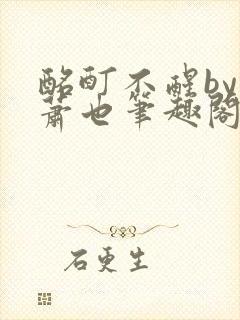 酩酊不醒by
萧也笔趣阁
石更生